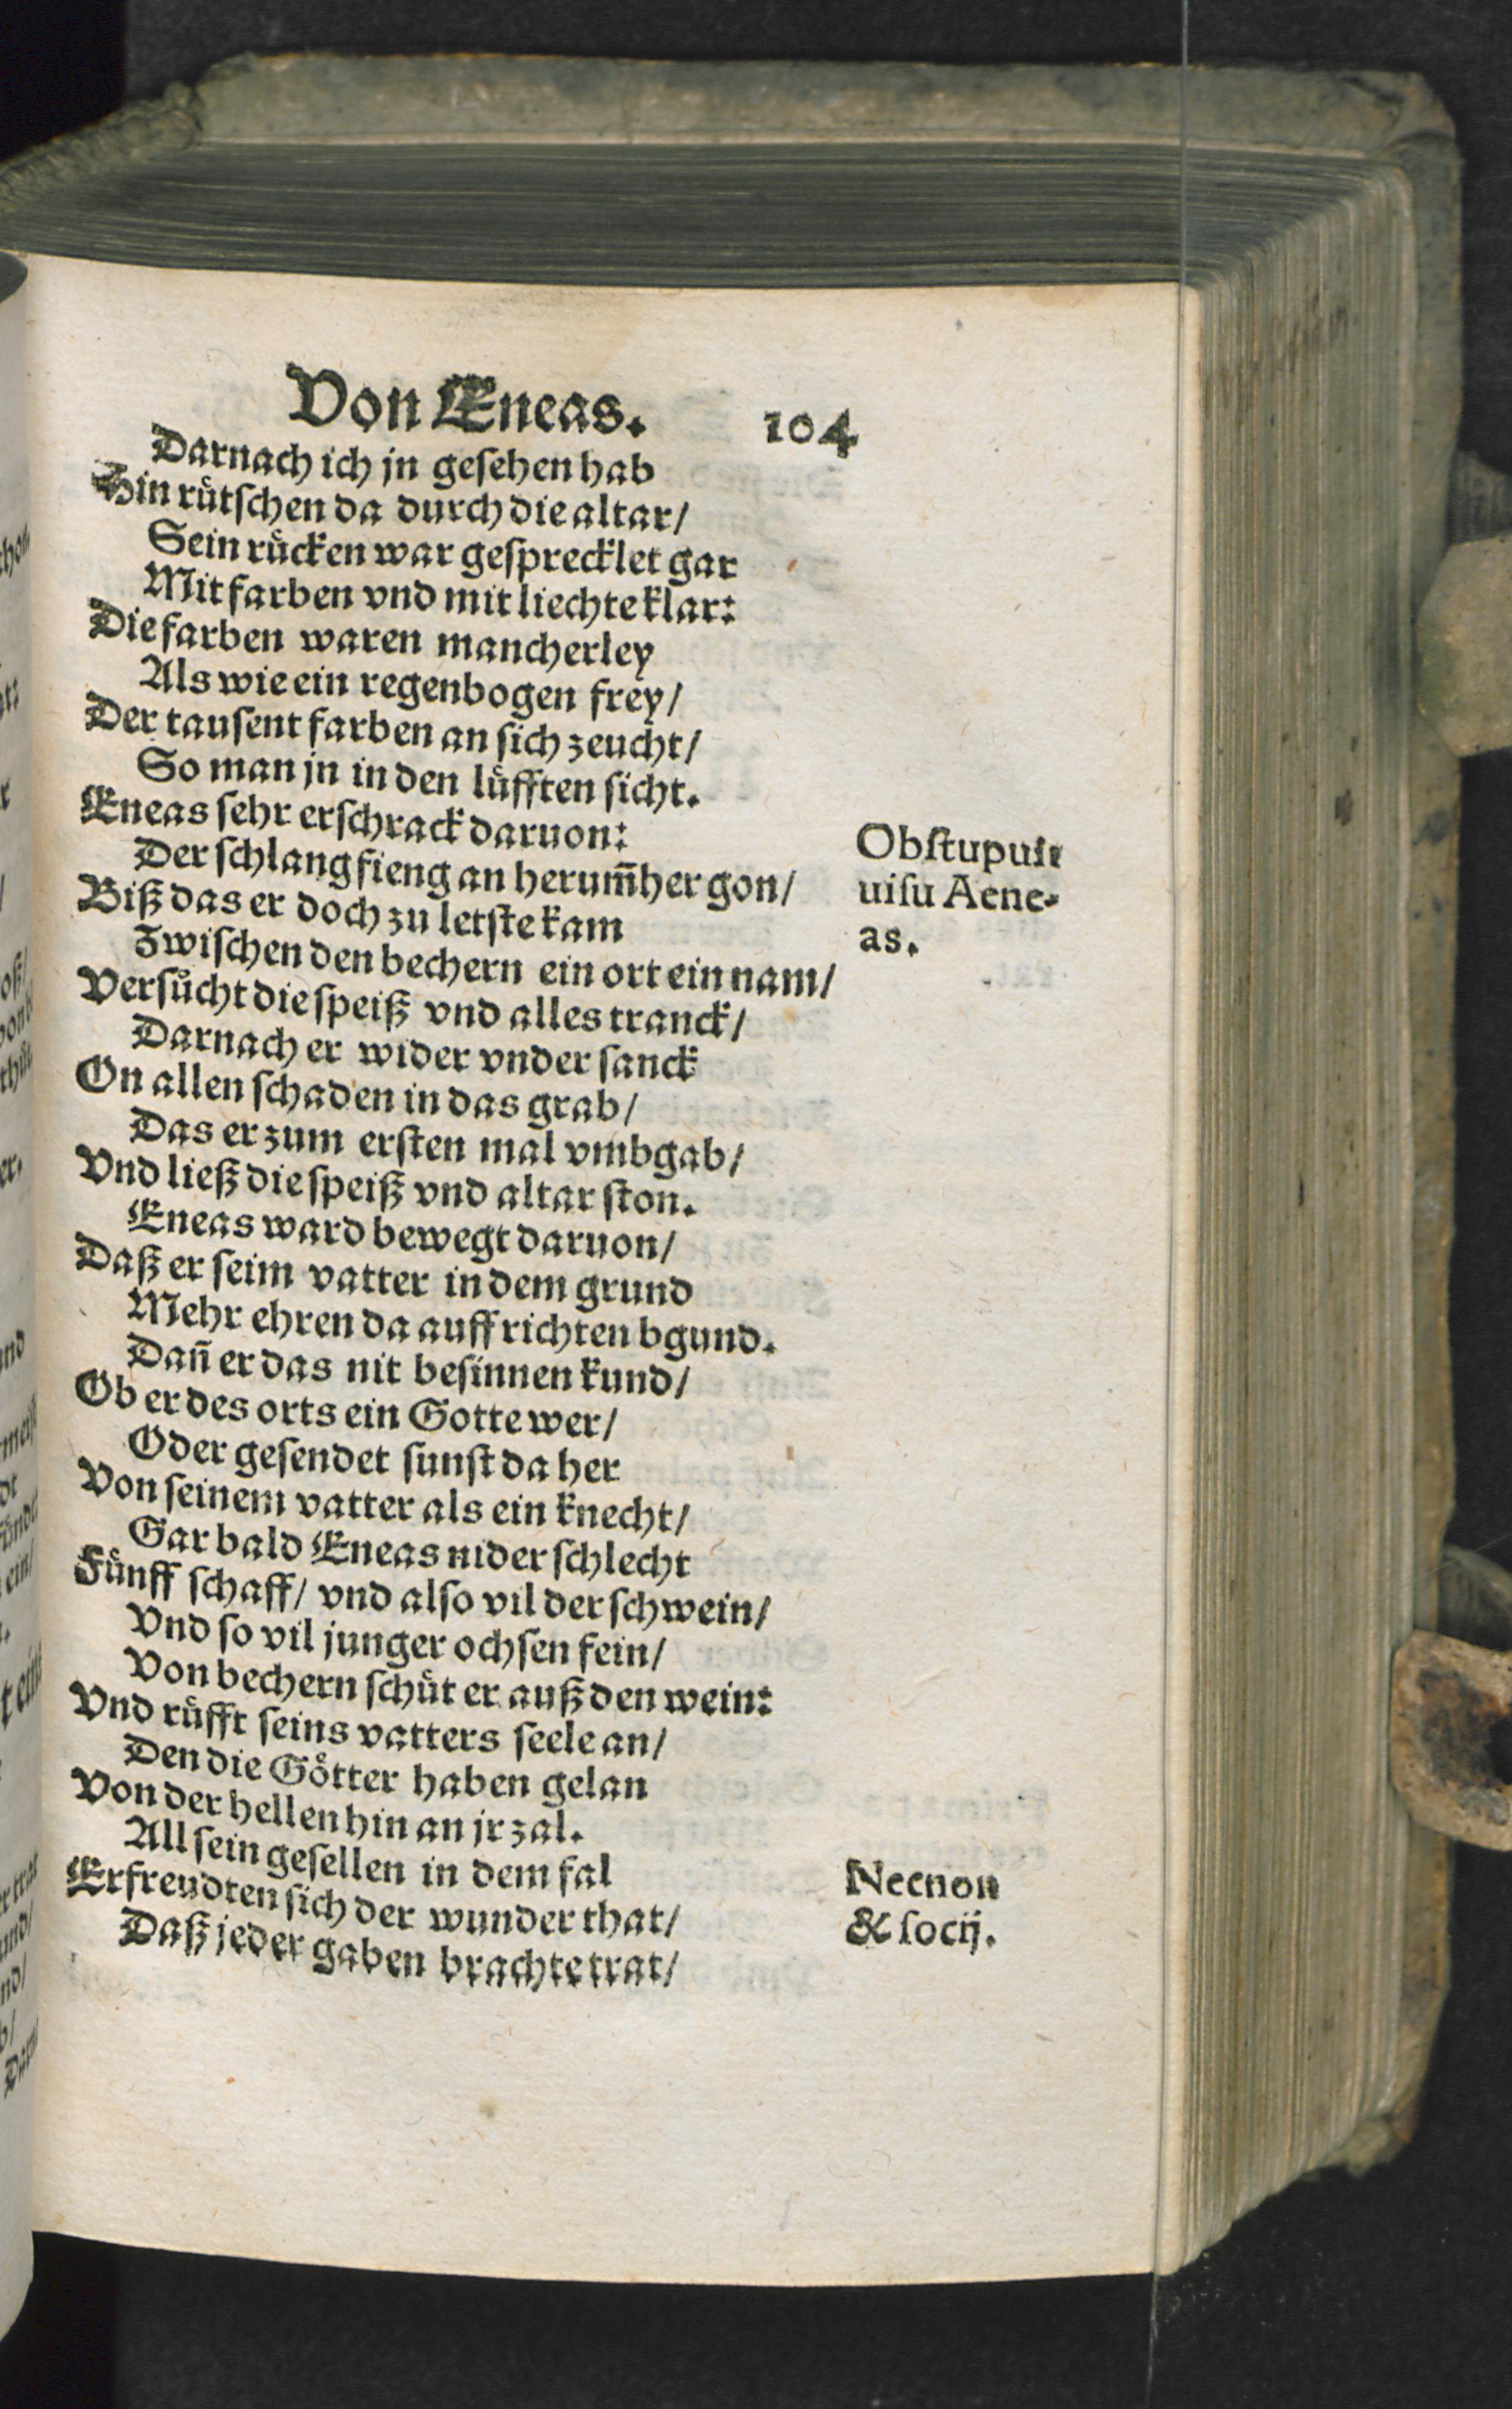 Von Eneas. 104
Darnach ich jn gesehen hab
Hin ruͤtschen da durch die altar/
Sein ruͤcken war gesprecklet gar
Mit farben vnd mit liechte klar:
Die farben waren mancherley
Als wie ein regenbogen frey/
Der tausent farben an sich zeucht/
So man jn in den luͤfften sicht.
Eneas sehr erschrack daruon:
Der schlang fieng an herum̄her gon/
Biß das er doch zu letste kam
Zwischen den bechern ein ort ein nam/
Versuͦcht die speiß vnd alles tranck/
Darnach er wider vnder sanck
On allen schaden in das grab/
Das er zum ersten mal vmbgab/
Vnd ließ die speiß vnd altar ston.
Eneas ward bewegt daruon/
Daß er seim vatter in dem grund
Mehr ehren da auff richten bgund.
Dan̄ er das nit besinnen kund/
Ob er des orts ein Gotte wer/
Oder gesendet sunst da her
Von seinem vatter als ein knecht/
Gar bald Eneas nider schlecht
Fuͤnff schaff/ vnd also vil der schwein/
Vnd so vil junger ochsen fein/
Von bechern schuͤt er auß den wein:
Vnd ruͤfft seins vatters seele an/
Den die Goͤtter haben gelan
Von der hellen hin an jr zal.
All sein gesellen in dem fal
Erfreudten sich der wunder that/
Daß jeder gaben brachte trat/
Obstupuit
uisu Aene-
as.
Necnon
& socij.